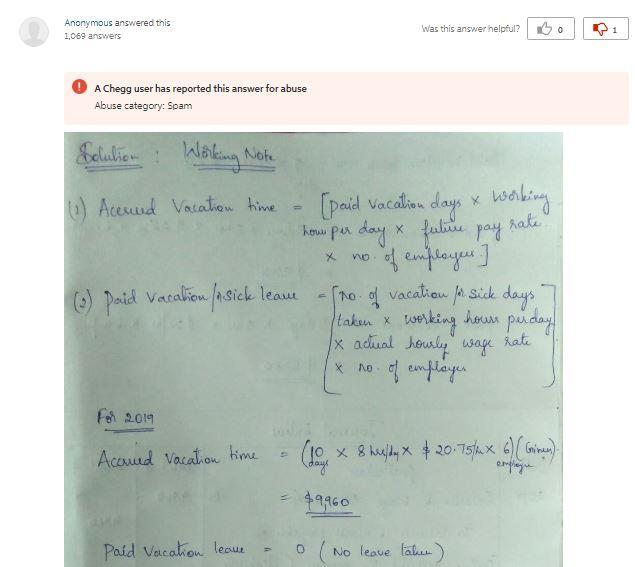 Anonymous answered this
1,069 answers
Was this answer helpful?
0
1
A Chegg user has reported this answer for abuse
Abuse category: Spam
Solution : Working Note
(1) Accrued Vacation time = [paid vacation days x working
hour per day x future pay rate
x no. of employees]
(2) Paid Vacation /n sick leave = [no. of vacation /n sick days
taken x working hours per day
x actual hourly wage rate
x no. of employees]
For 2019
Accrued Vacation time = (10 days x 8 hrs/day x $ 20.75/h x 6) (Given)
employee
= $9,960
Paid Vacation leave = 0 (No leave taken)